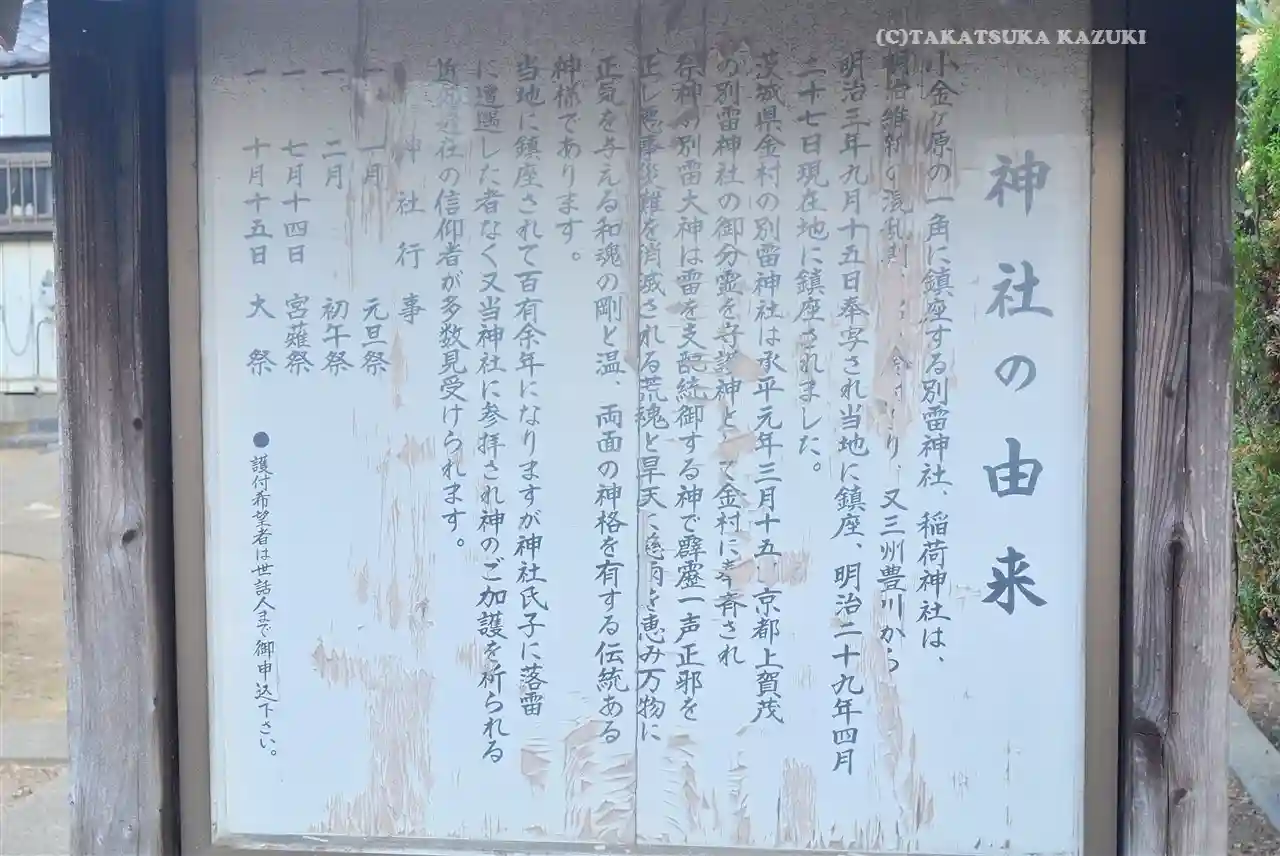 (C)TAKATSUKA KAZUKI
神社の由来
小金ヶ原の一角に鎮座する別雷神社、稲荷神社は、
明治維新の混乱 り、又三州豊川から
明治三年九月十五日奉写され当地に鎮座、明治二十九年四月
二十七日現在地に鎮座されました。
茨城県金村の別雷神社は承平元年三月十五 京都上賀茂
の別雷神社の御分霊を守護神として金村に奉斉され
祭神の別雷大神は雷を支配統御する神で霹靂一声正邪を
正し悪事災難を消滅される荒魂と旱天に慈雨を恵み万物に
正気を与える和魂の剛と温、両面の神格を有する伝統ある
神様であります。
当地に鎮座されて百有余年になりますが神社氏子に落雷
に遭遇した者なく又当神社に参拝され神のご加護を祈られる
近 近社の信仰者が多数見受けられます。
神社行事
一、一月 元旦祭
一、二月 初午祭
一、七月十四日 宮薙祭
一、十月十五日 大祭
●護付希望者は世話人まで御申込下さい。